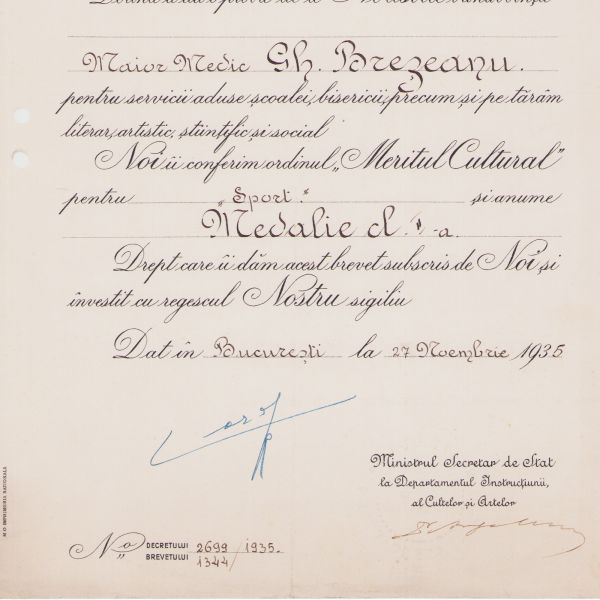 Maior Medic Gh. Brezeanu.
pentru servicii aduse școalei, bisericii, precum și pe tărâm
literar, artistic, științific și social
Noi îi conferim ordinul „Meritul Cultural"
pentru „Sport." și anume
Medalie cl. I-a.
Drept care îi dăm acest brevet subscris de Noi și
învestit cu regescul Nostru sigiliu
Dat în București la 27 Noembrie 1935
Ministrul Secretar de Stat
la Departamentul Instrucțiunii,
al Cultelor și Artelor
M.O. IMPRIMERIA NAȚIONALĂ
No DECRETULUI 2699/1935.
„ BREVETULUI 1344